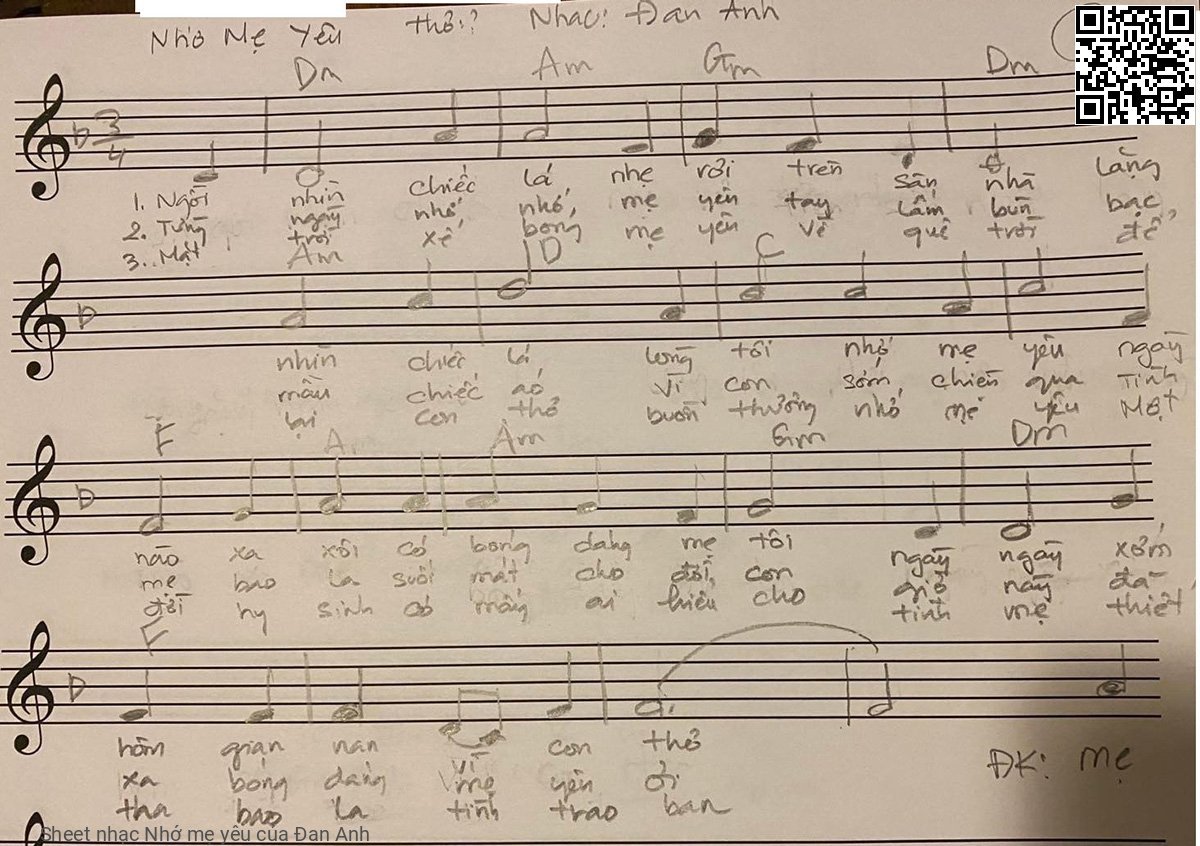 Nhớ Mẹ Yêu thơ:? Nhạc: Đan Anh
Dm Am Gm Dm
3/4
1. Ngồi nhìn chiếc lá nhẹ rơi trên sân nhà lặng
2. Từng ngày nhỏ nhỏ, mẹ yên tay lấm bùn bạc
3. Mặt trời xế bóng mẹ yên về quê trời để
Am D C
nhìn chiếc lá lòng tôi nhớ mẹ yêu ngày
mầu chiếc áo vì con sớm, chiều qua Tình
lại con thơ buồn thương nhớ mẹ yêu Một
F A Am Gm Dm
nào xa xôi có bóng dáng mẹ tôi ngày ngày xớm
mẹ bao la suối mát cho đời, con giờ nầy đã
đời hy sinh có mấy ai hiểu cho tình mẹ thiết
F
hôm gian nan vì con thơ
xa bóng dáng mẹ yên ơi
tha bao la tình trao ban
ĐK: Mẹ
Sheet nhạc Nhớ mẹ yêu của Đan Anh